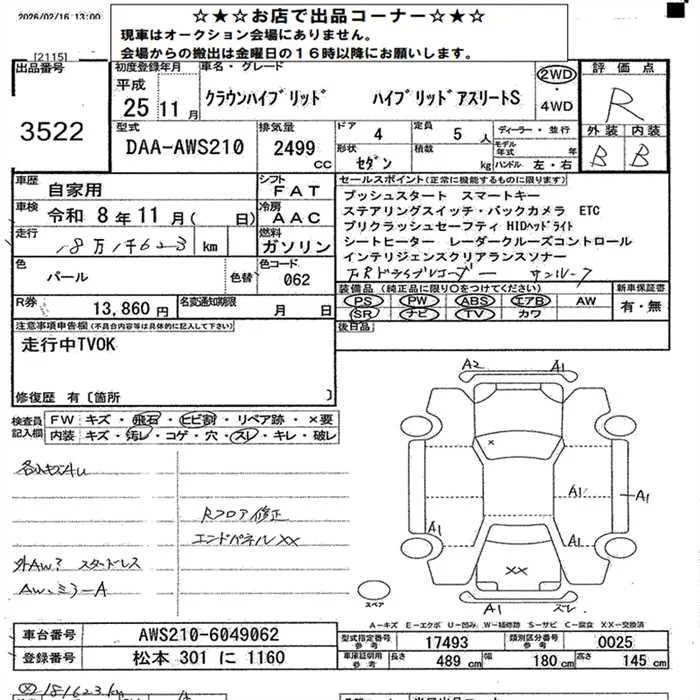 2026/02/16 13:00
☆★☆お店で出品コーナー☆★☆
現車はオークション会場にありません。
会場からの搬出は金曜日の16時以降にお願いします。
[2115]
出品番号
3522
初度登録年月
平成
25 11 月
車名・グレード
クラウンハイブリッド ハイブリッドアスリートS
2WD
・
4WD
評価点
R
外装 内装
B B
型式
DAA-AWS210
排気量
2499 CC
ドア 4
定員 5 人
形状 セダン
積載 kg
ディーラー・並行
モデル年式 年
ハンドル 左・右
車歴 自家用
シフト FAT
車検 令和 8 年 11 月 ( 日)
冷房 AAC
走行 18万1千623 km
燃料 ガソリン
色 パール
色替
色コード 062
R券 13,860 円
名変通知期限 月 日
セールスポイント(正常に機能するものに限ります)
プッシュスタート スマートキー
ステアリングスイッチ・バックカメラ ETC
プリクラッシュセーフティ HIDヘッドライト
シートヒーター レーダークルーズコントロール
インテリジェンスクリアランスソナー
F.Rドライブレコーダー サンルーフ
装備品(純正品に限り○をつけてください)
PS PW ABS エアB AW
SR ナビ TV カワ
新車保証書
有・無
後日品
注意事項申告欄(不具合内容等は具体的に記入して下さい)
走行中TVOK
修復歴 有〔箇所 〕
検査員記入欄
FW キズ・飛石・ヒビ割・リペア跡・×要
内装 キズ・汚レ・コゲ・穴・スレ・キレ・破レ
Rフロア修正
エンドパネルXX
外AW? スタッドレス
AW、ミラーA
A2 A1
×
A1 A1
A1 A1
XX
A1 スレ
スペア
A－キズ E－エクボ U－凹み W－補修跡 S－サビ C－腐食 XX－交換済
車台番号 AWS210-6049062
登録番号 松本 301 に 1160
型式指定番号 参考 17493
類別区分番号 参考 0025
車庫証明用 参考 長さ 489 cm 幅 180 cm 高さ 145 cm
181623km